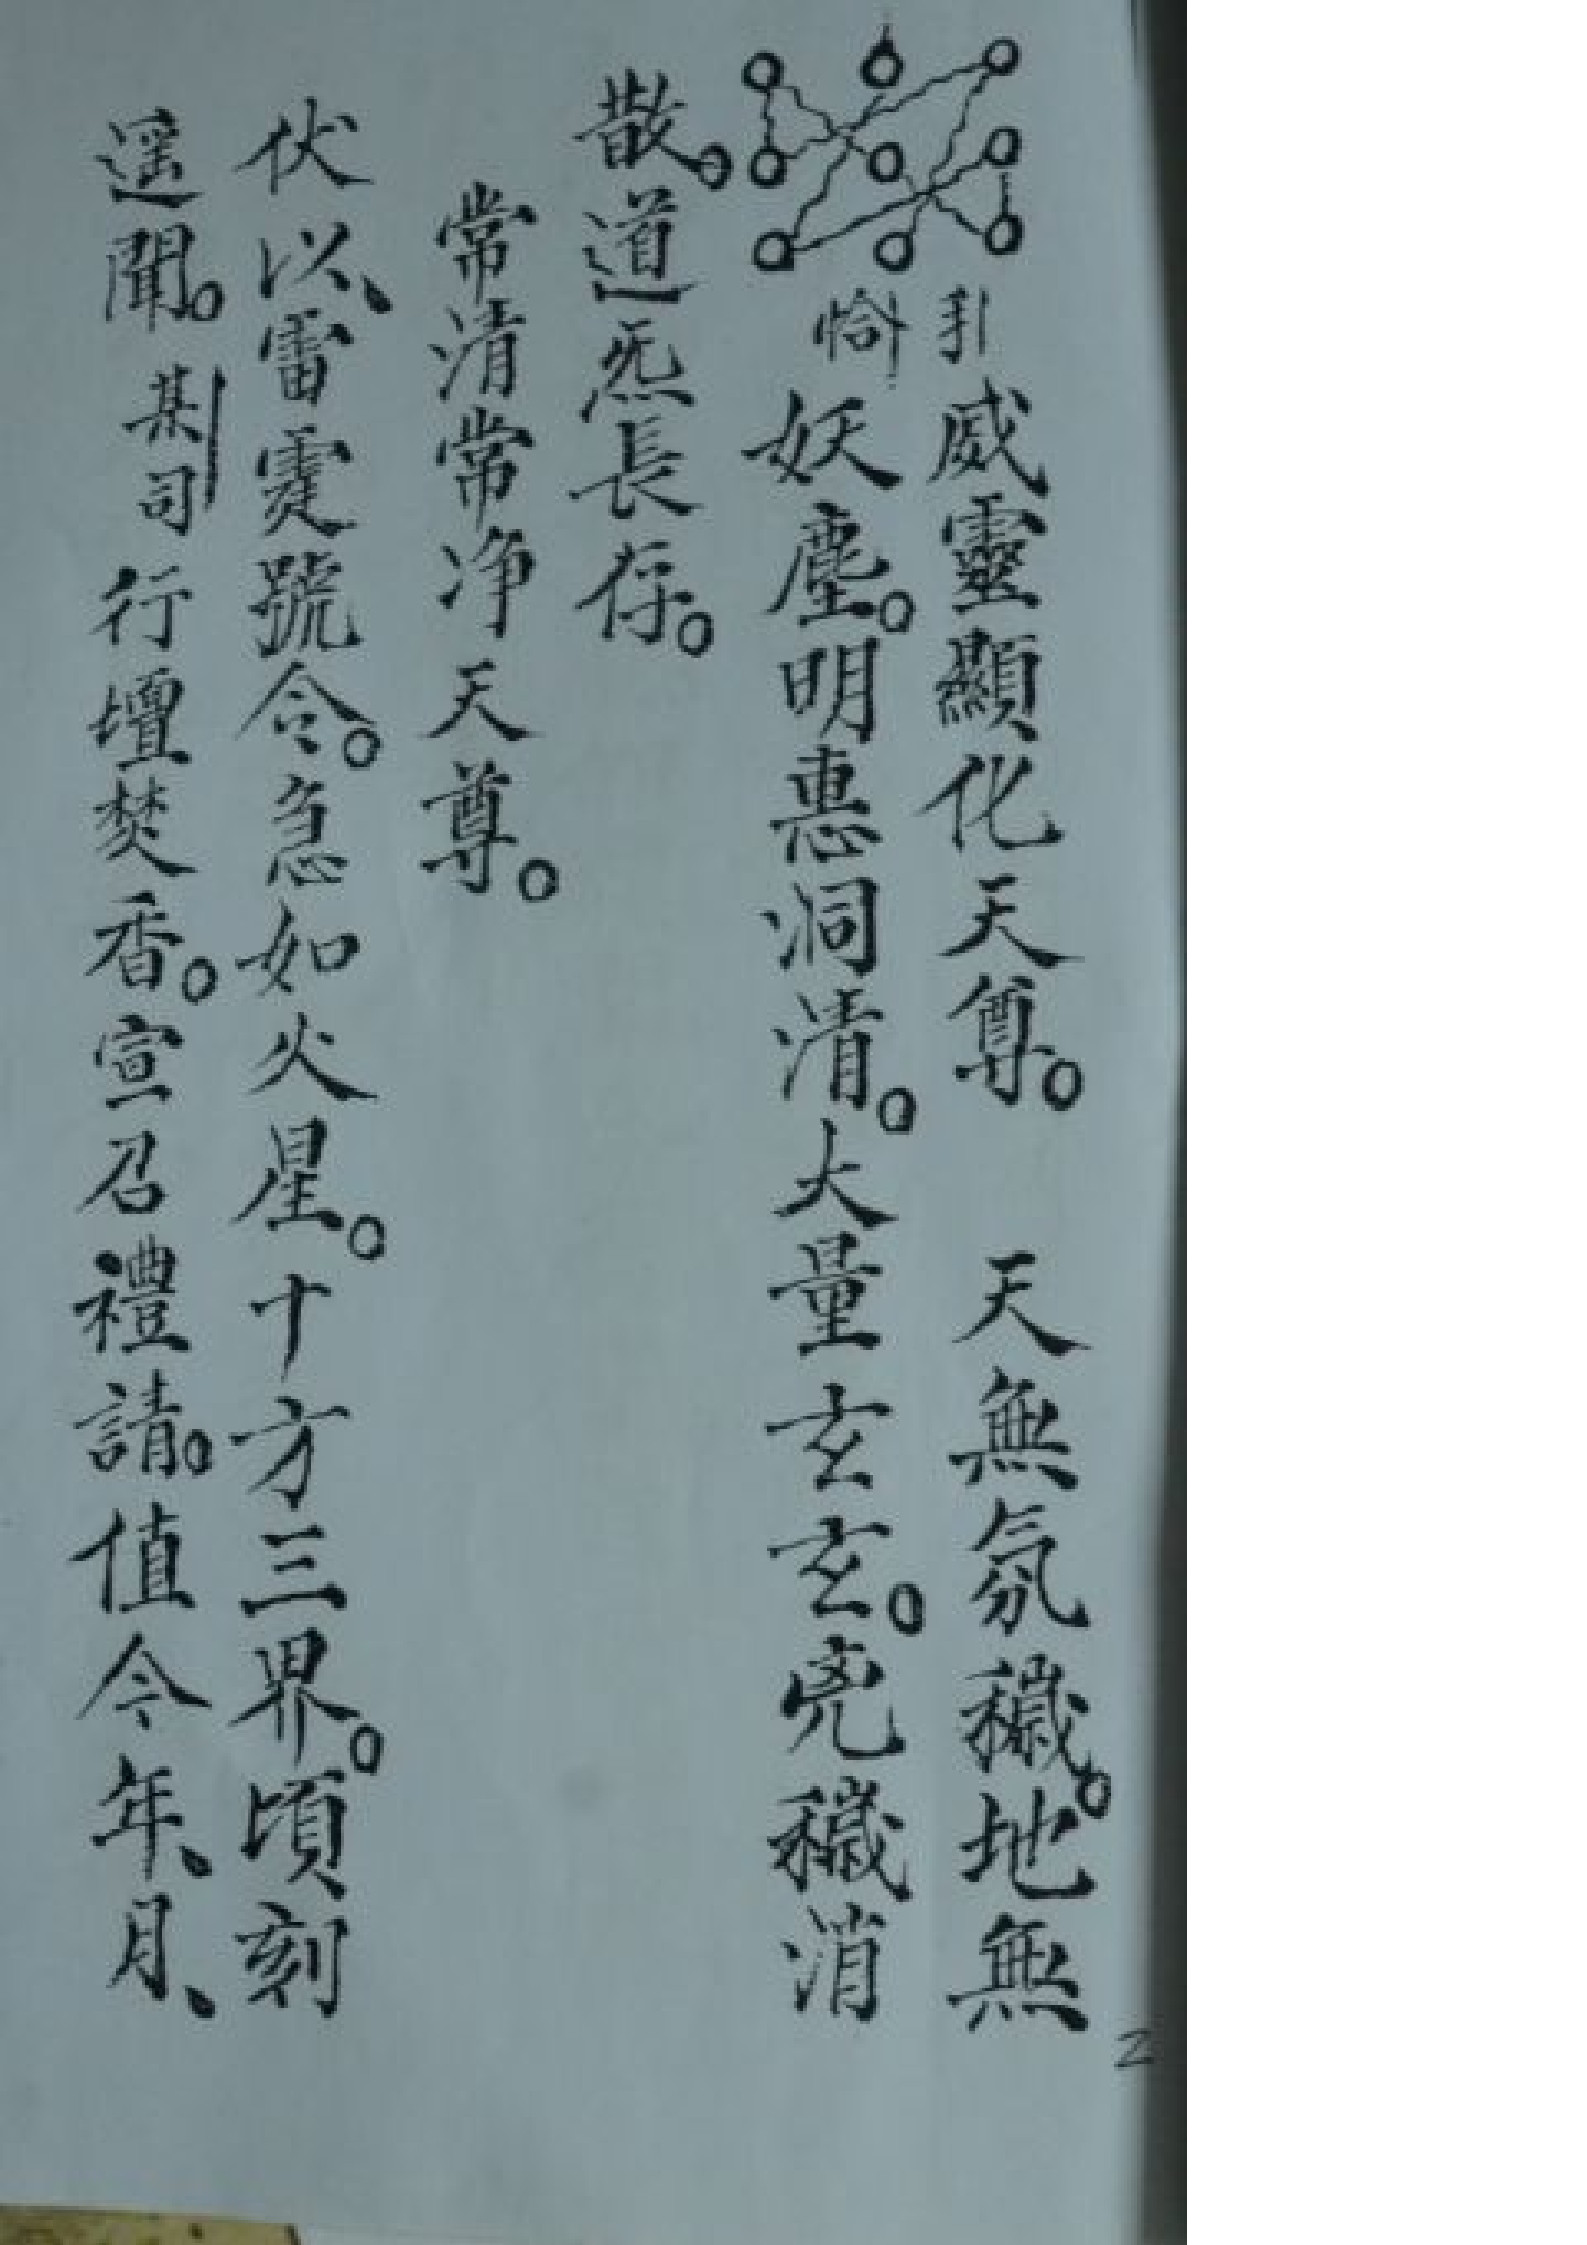 引威靈顯化天尊。 天無氛穢。地無
妖塵。明惠洞清。大量玄玄。兇穢消
散。道炁長存。
常清常净天尊。
伏以、雷霆號令。急如火星。十方三界。頃刻
遥聞。某司行壇焚香。宣召禮請。值今年、月、
2